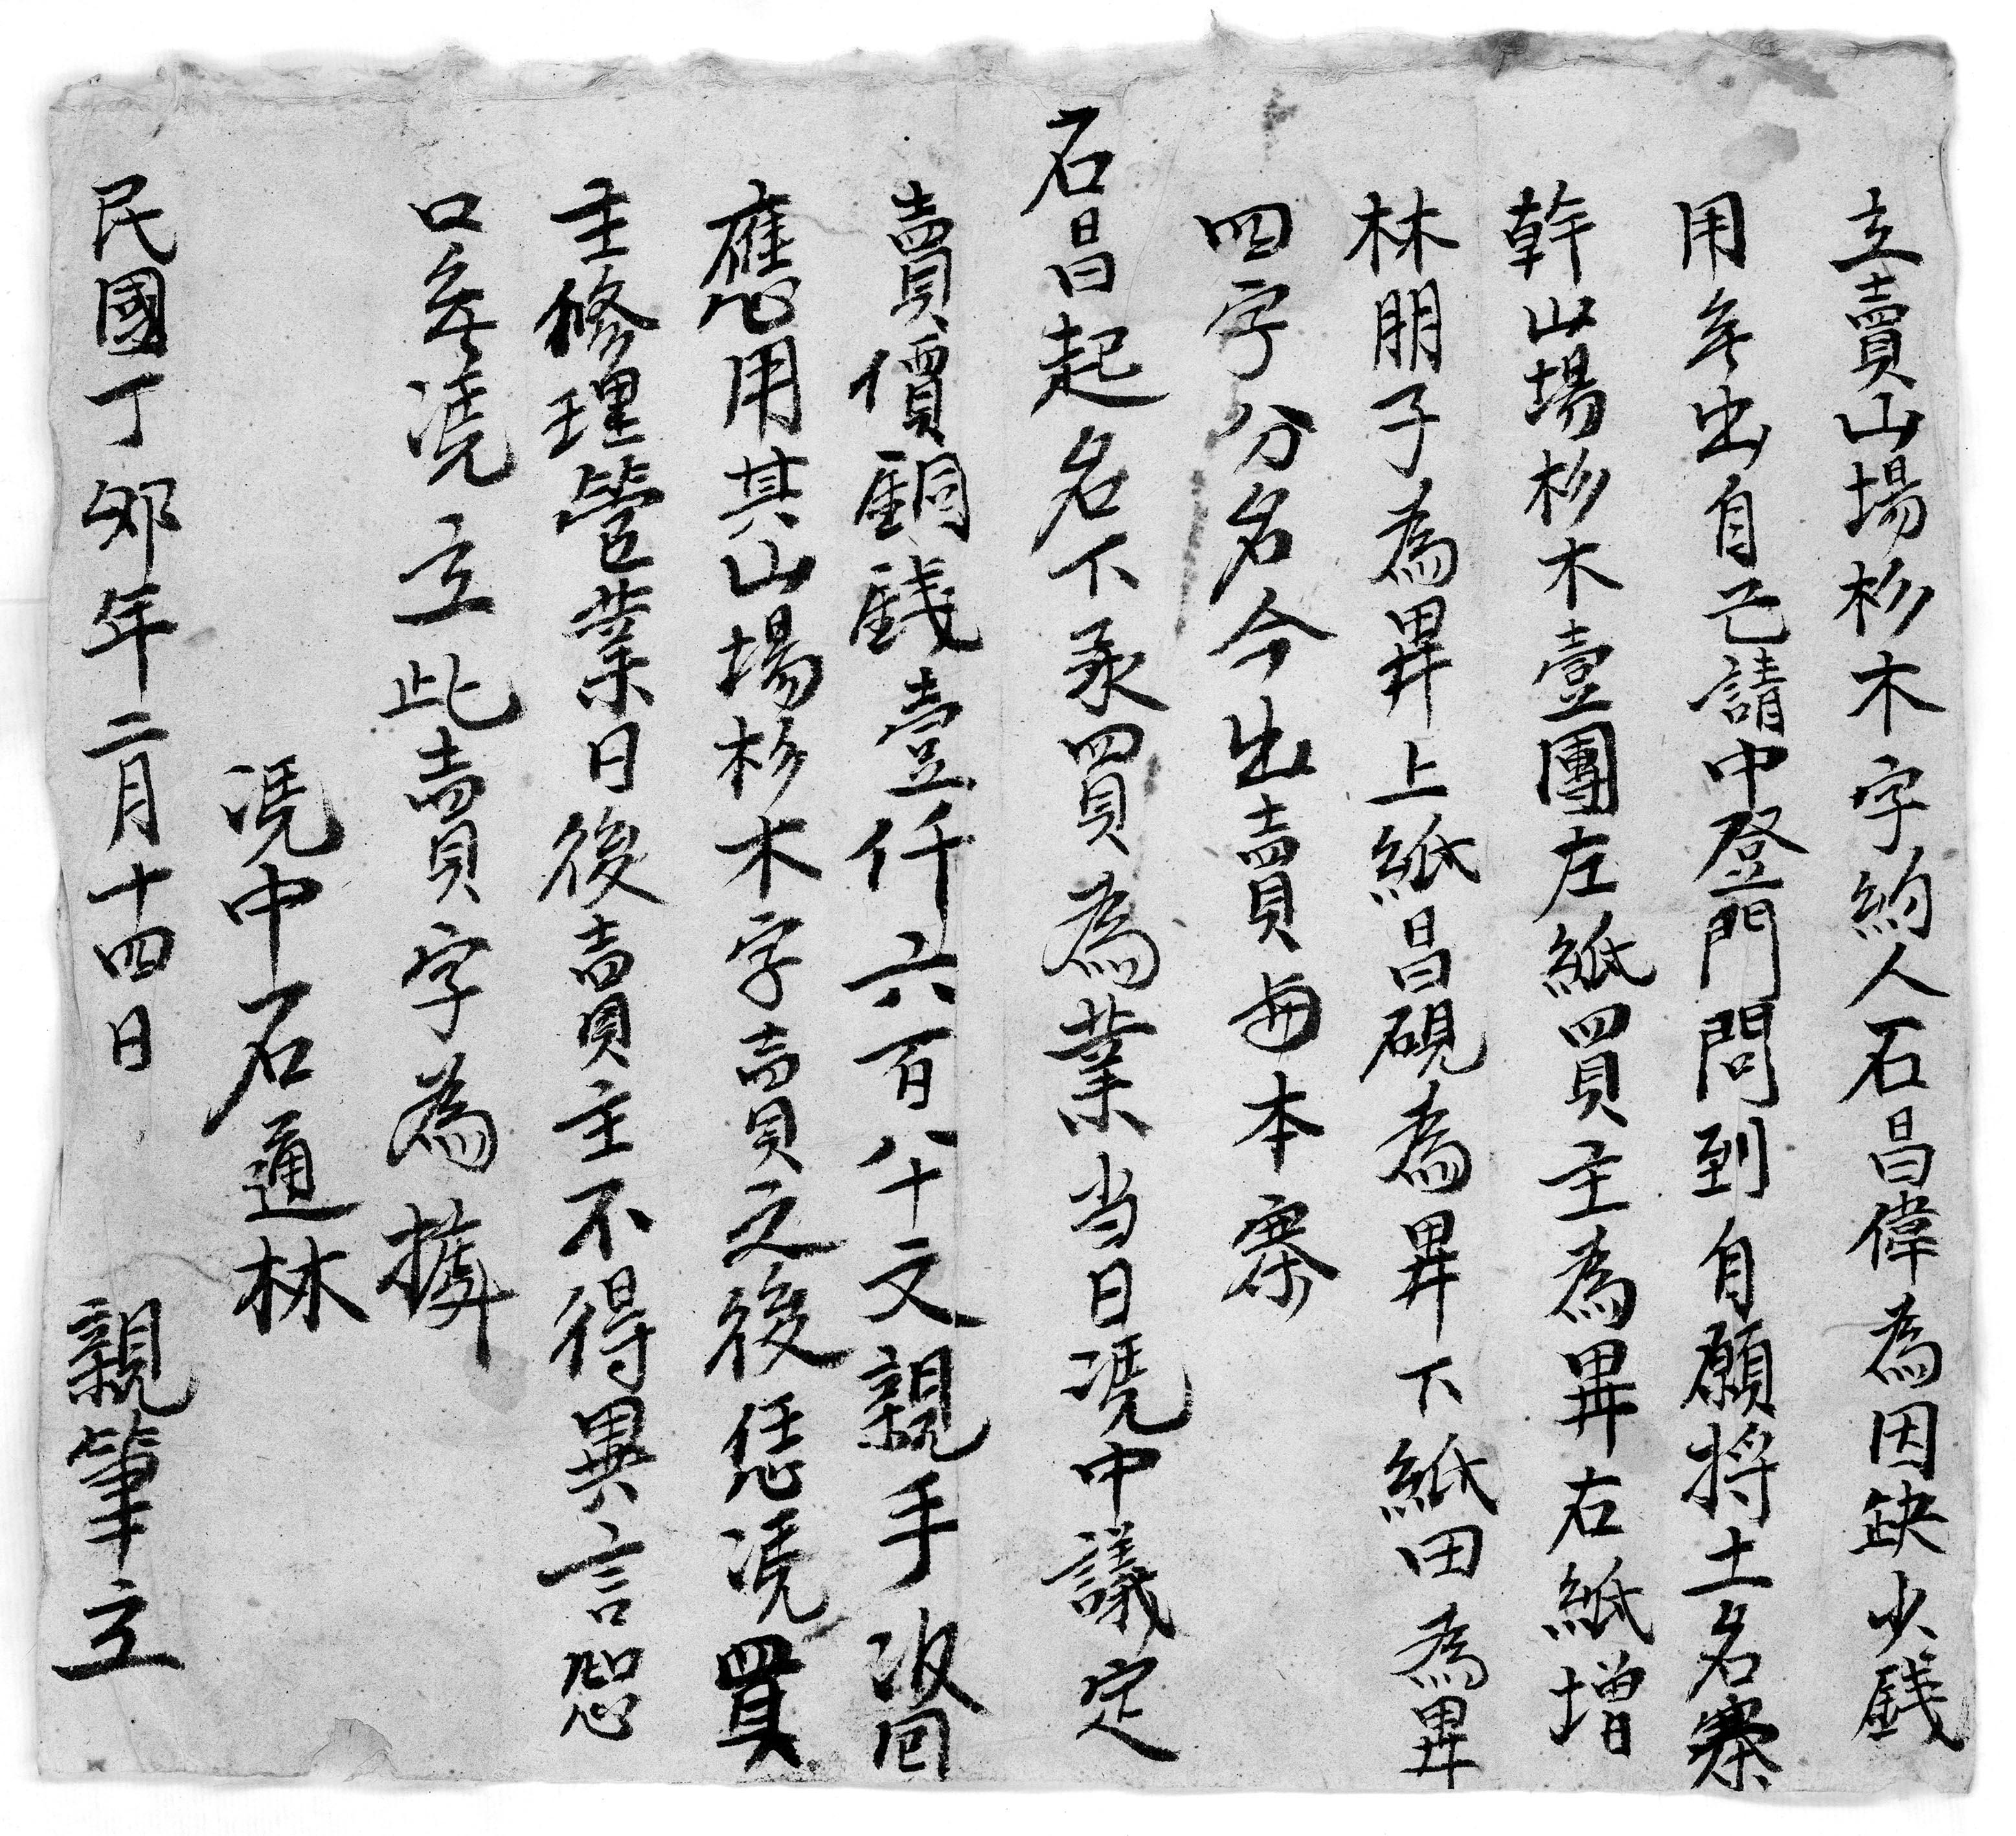 立賣山場杉木字約人石昌偉為因缺少錢
用無出自己請中登門問到自願将土名寨
幹山場杉木壹團左紙買主為畀右紙增
林朋子為畀上紙昌硯為畀下紙田為畀
四字分名今出賣與本寨
石昌起名下承買為業当日凴中議定
賣價銅錢壹仟六百八十文親手收回
應用其山場杉木字賣之後恁凴買
主修理管業日後賣主不得異言恐
口無凴立此賣字為據
凴中石通林
民國丁卯年二月十四日 親筆立